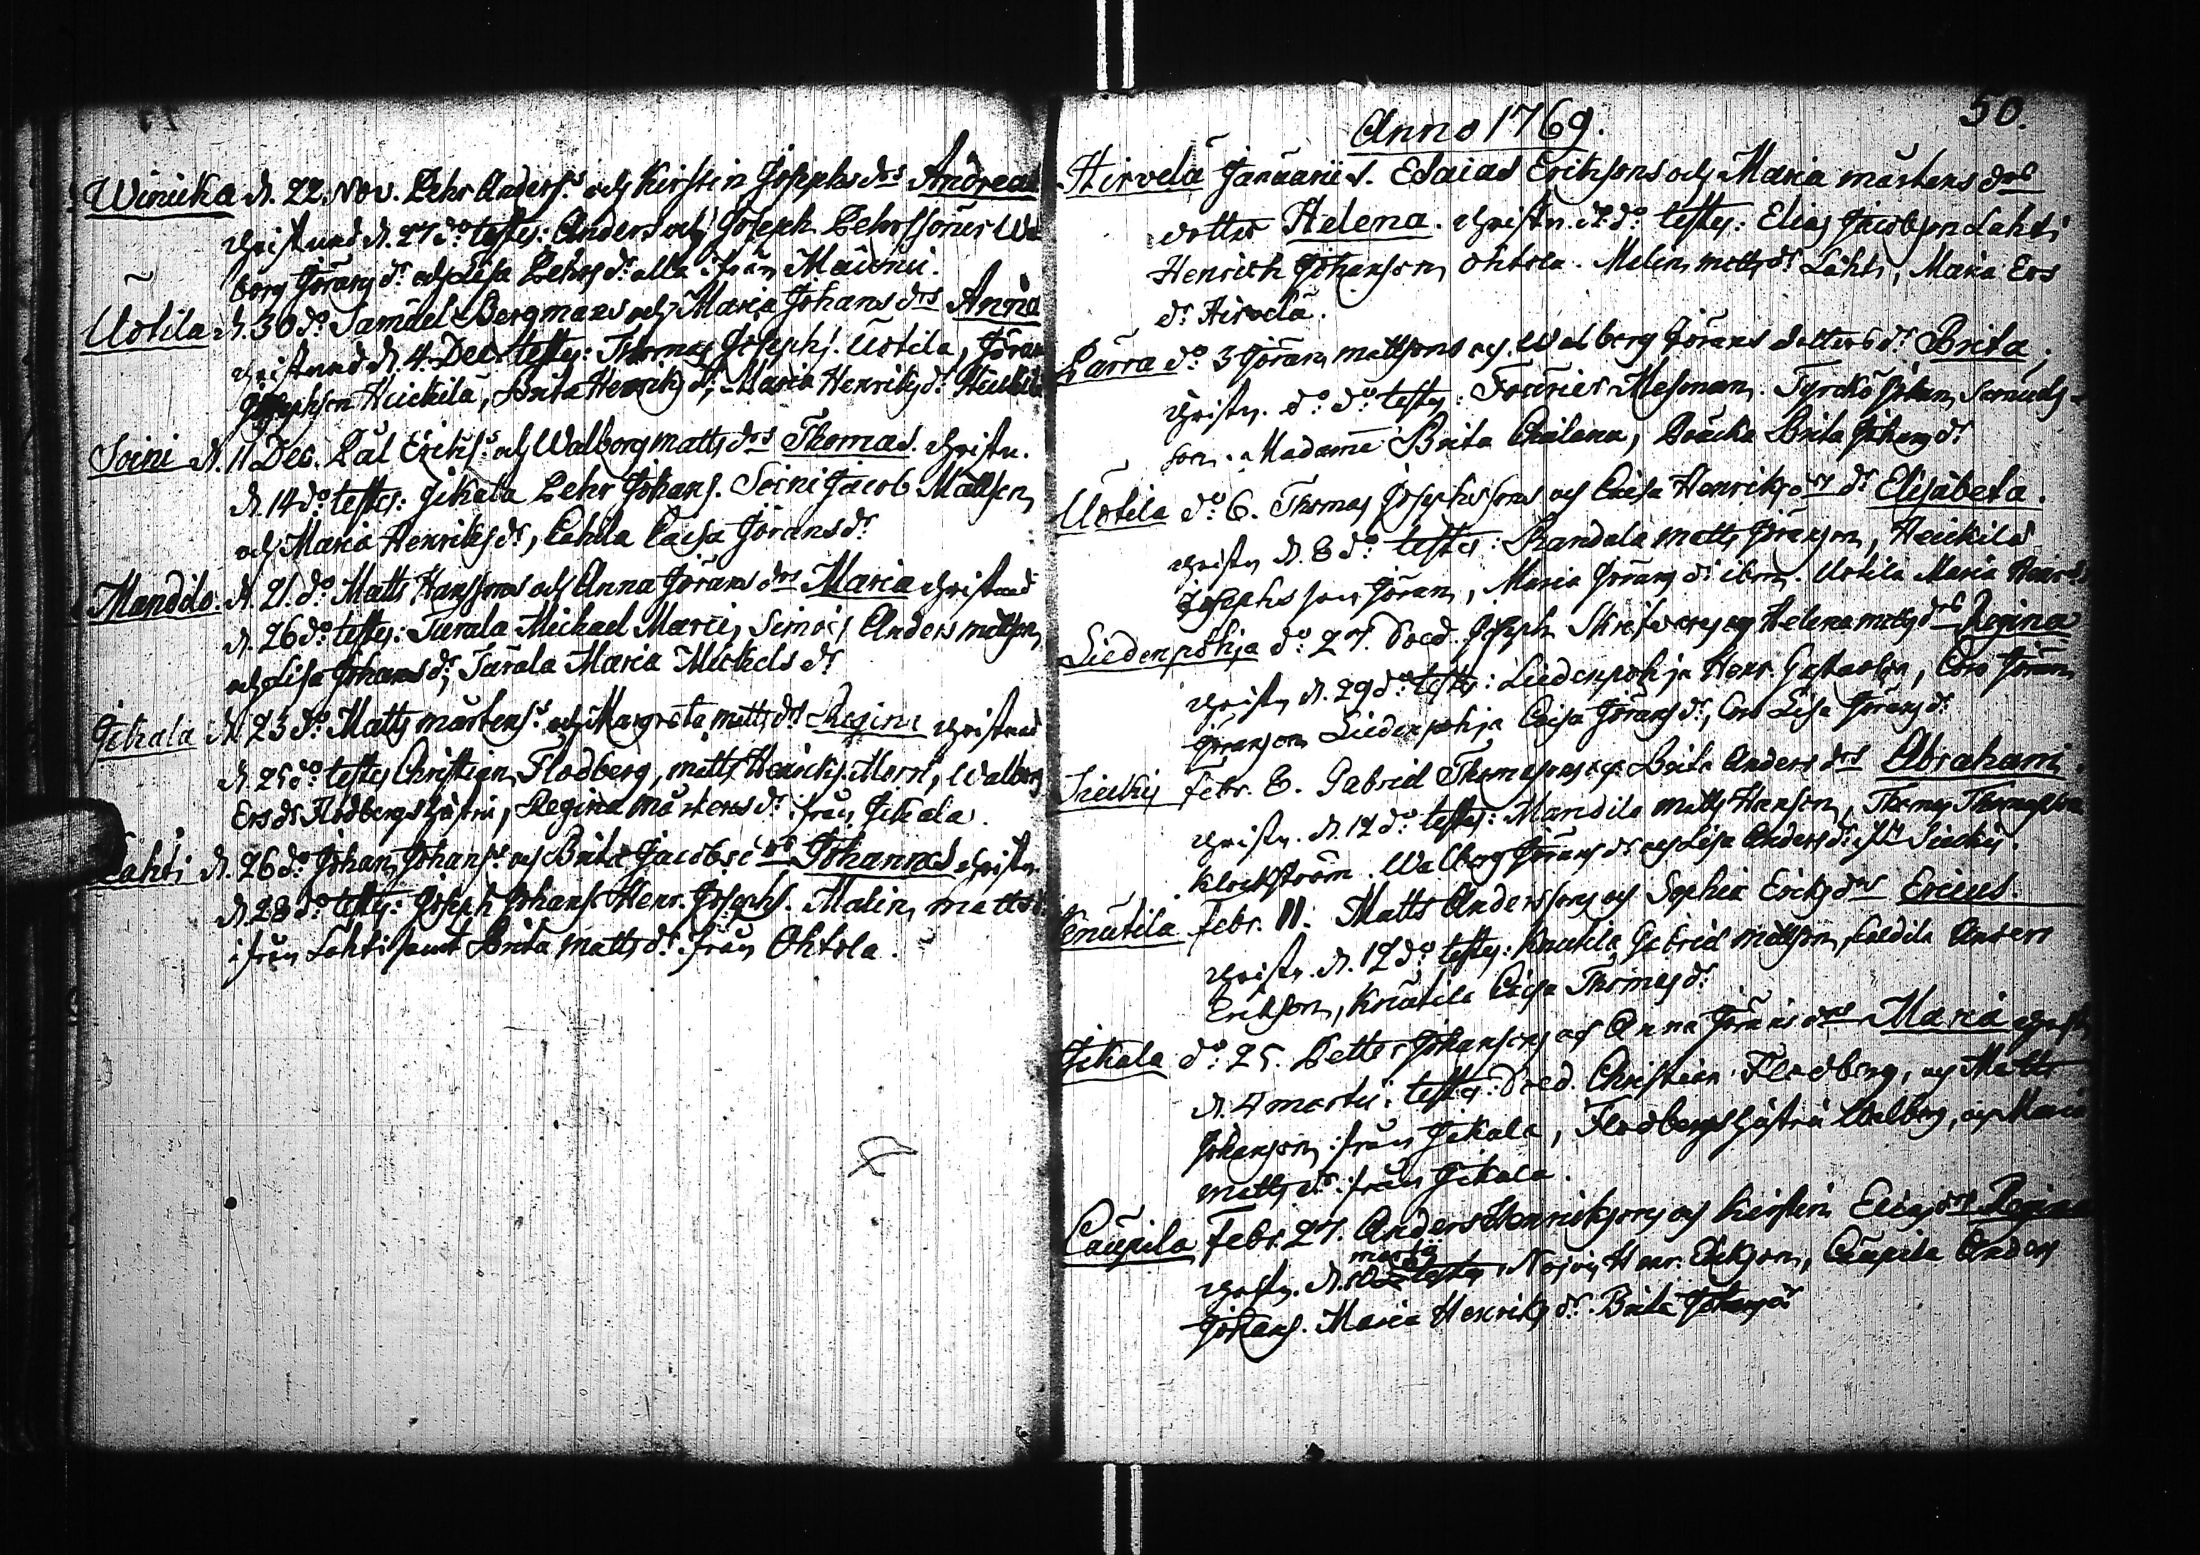 Winicka d. 22. Nov. Pehr Anders.s och Kirstin Josephs drs Andreas
Christnad d. 27 do testes: Anders och Joseph Pehrssöner Wal
borg Jörans dr och Lisa Pehrs dr alla ifrån Maunu.
Uotila d. 30 do Samuel Bergmans och Maria Johans drs Anna
christnad d. 4. Dec. testes: Thomas Josephs. Uotila, Jöran
Josephson Heickilä, Brita Henriks dr, Maria Henriks dr Heickilä
Soini d. 11 Dec. Pål Ericks.s och Walborg matts drs Thomas. Christn.
d. 14 do testes: Jckala Pehr Johans. Soini Jacob Mattson
och Maria Henriks dr, Caisa Jörans dr
Mandilo. d. 21. do Matts Hanssons och Anna Jörans drs Maria Christnad
d. 26 do testes: Turala Michael Marci, Simoi Anders mattson
och Lisa Johans dr, Turala Maria Michels dr
Jckala d. 23 do Matts mårtens.s och Margreta matts drs Regina Christnad
d. 25 do testes Christian Flodberg, matts Henricks. Walborg
Ers dr Flodbergs hustru, Regina mårtens dr ifrån Jckala.
Lahti d. 26 do Johan Johans.s och Brita Jacobs drs Johannes Christn.
d. 28 do testes: Joseph Johans. Henr. Josephs. Malin matts dr
ifrån Lahti samt Brita Matts dr ifrån Ohtola.
50.
Anno 1769.
Hirvelä Januarii 1. Esaias Eriksons och Maria mårtens drs
dotter Helena. Christn. do testes: Elias Jacobson Lahti
Henrich Johanson Ohtola. Melin matts dr Lahti, Maria Ers
dr Hirvelä.
Pärra do 3 Jöran mattsons och Walborg Jörans dotters dr Brita,
Christn. do do testes: Fourier Mesman. Tyrckö Johan Samuels-
son. Madame Brita Brita Johans dr
Uotila do 6. Thomas Josephssons och Caisa Henriks drs dr Elisabeta.
Christn d. 8 do testes: Randala matts Jöranson, Heickilä
Josephs son Jöran, Maria Jörans dr ibm. Uotila Maria
Liedenpohja do 27. Sold. Joseph och Helena matts drs Regina
Christn d. 29 do testes: Liedenpohja Henr. Gustavson, Jöran
Jöranson Liedenpohja Caisa Jörans dr, Lisa Jörans dr
Siecky Febr. 8. Gabriel Thomasons och Brita Anders drs Abraham.
Christn. d. 12 do testes: Mandila matts Hanson, Thomas Thomasson
Klockström. Walborg Jörans dr och Lisa Anders dr Siecky.
Knutila Febr. 11. Matts Anderssons och Sophia Ericks drs Ericus.
Christn. d. 12 do testes: Knutila Gabriel mattson, Anders
Erikson, Knutila Caisa Thomas dr
Jckala do 25. Petter Johansons och Anna Jörans drs Maria Christn
d. 4 martii: testes: Sold. Christian Flodberg, och Matts
Johanson ifrån Jckala, Flodbergs hustru Walborg, och Maria
matts dr ifrån Jckala.
Caupila Febr. 27. Anders Henricksons och Kirstin Elias drs Regina
martii
Christn. d. testes Henr. Erickson, Caupila Anders
Johans. Maria Henriks dr. Brita Johans dr